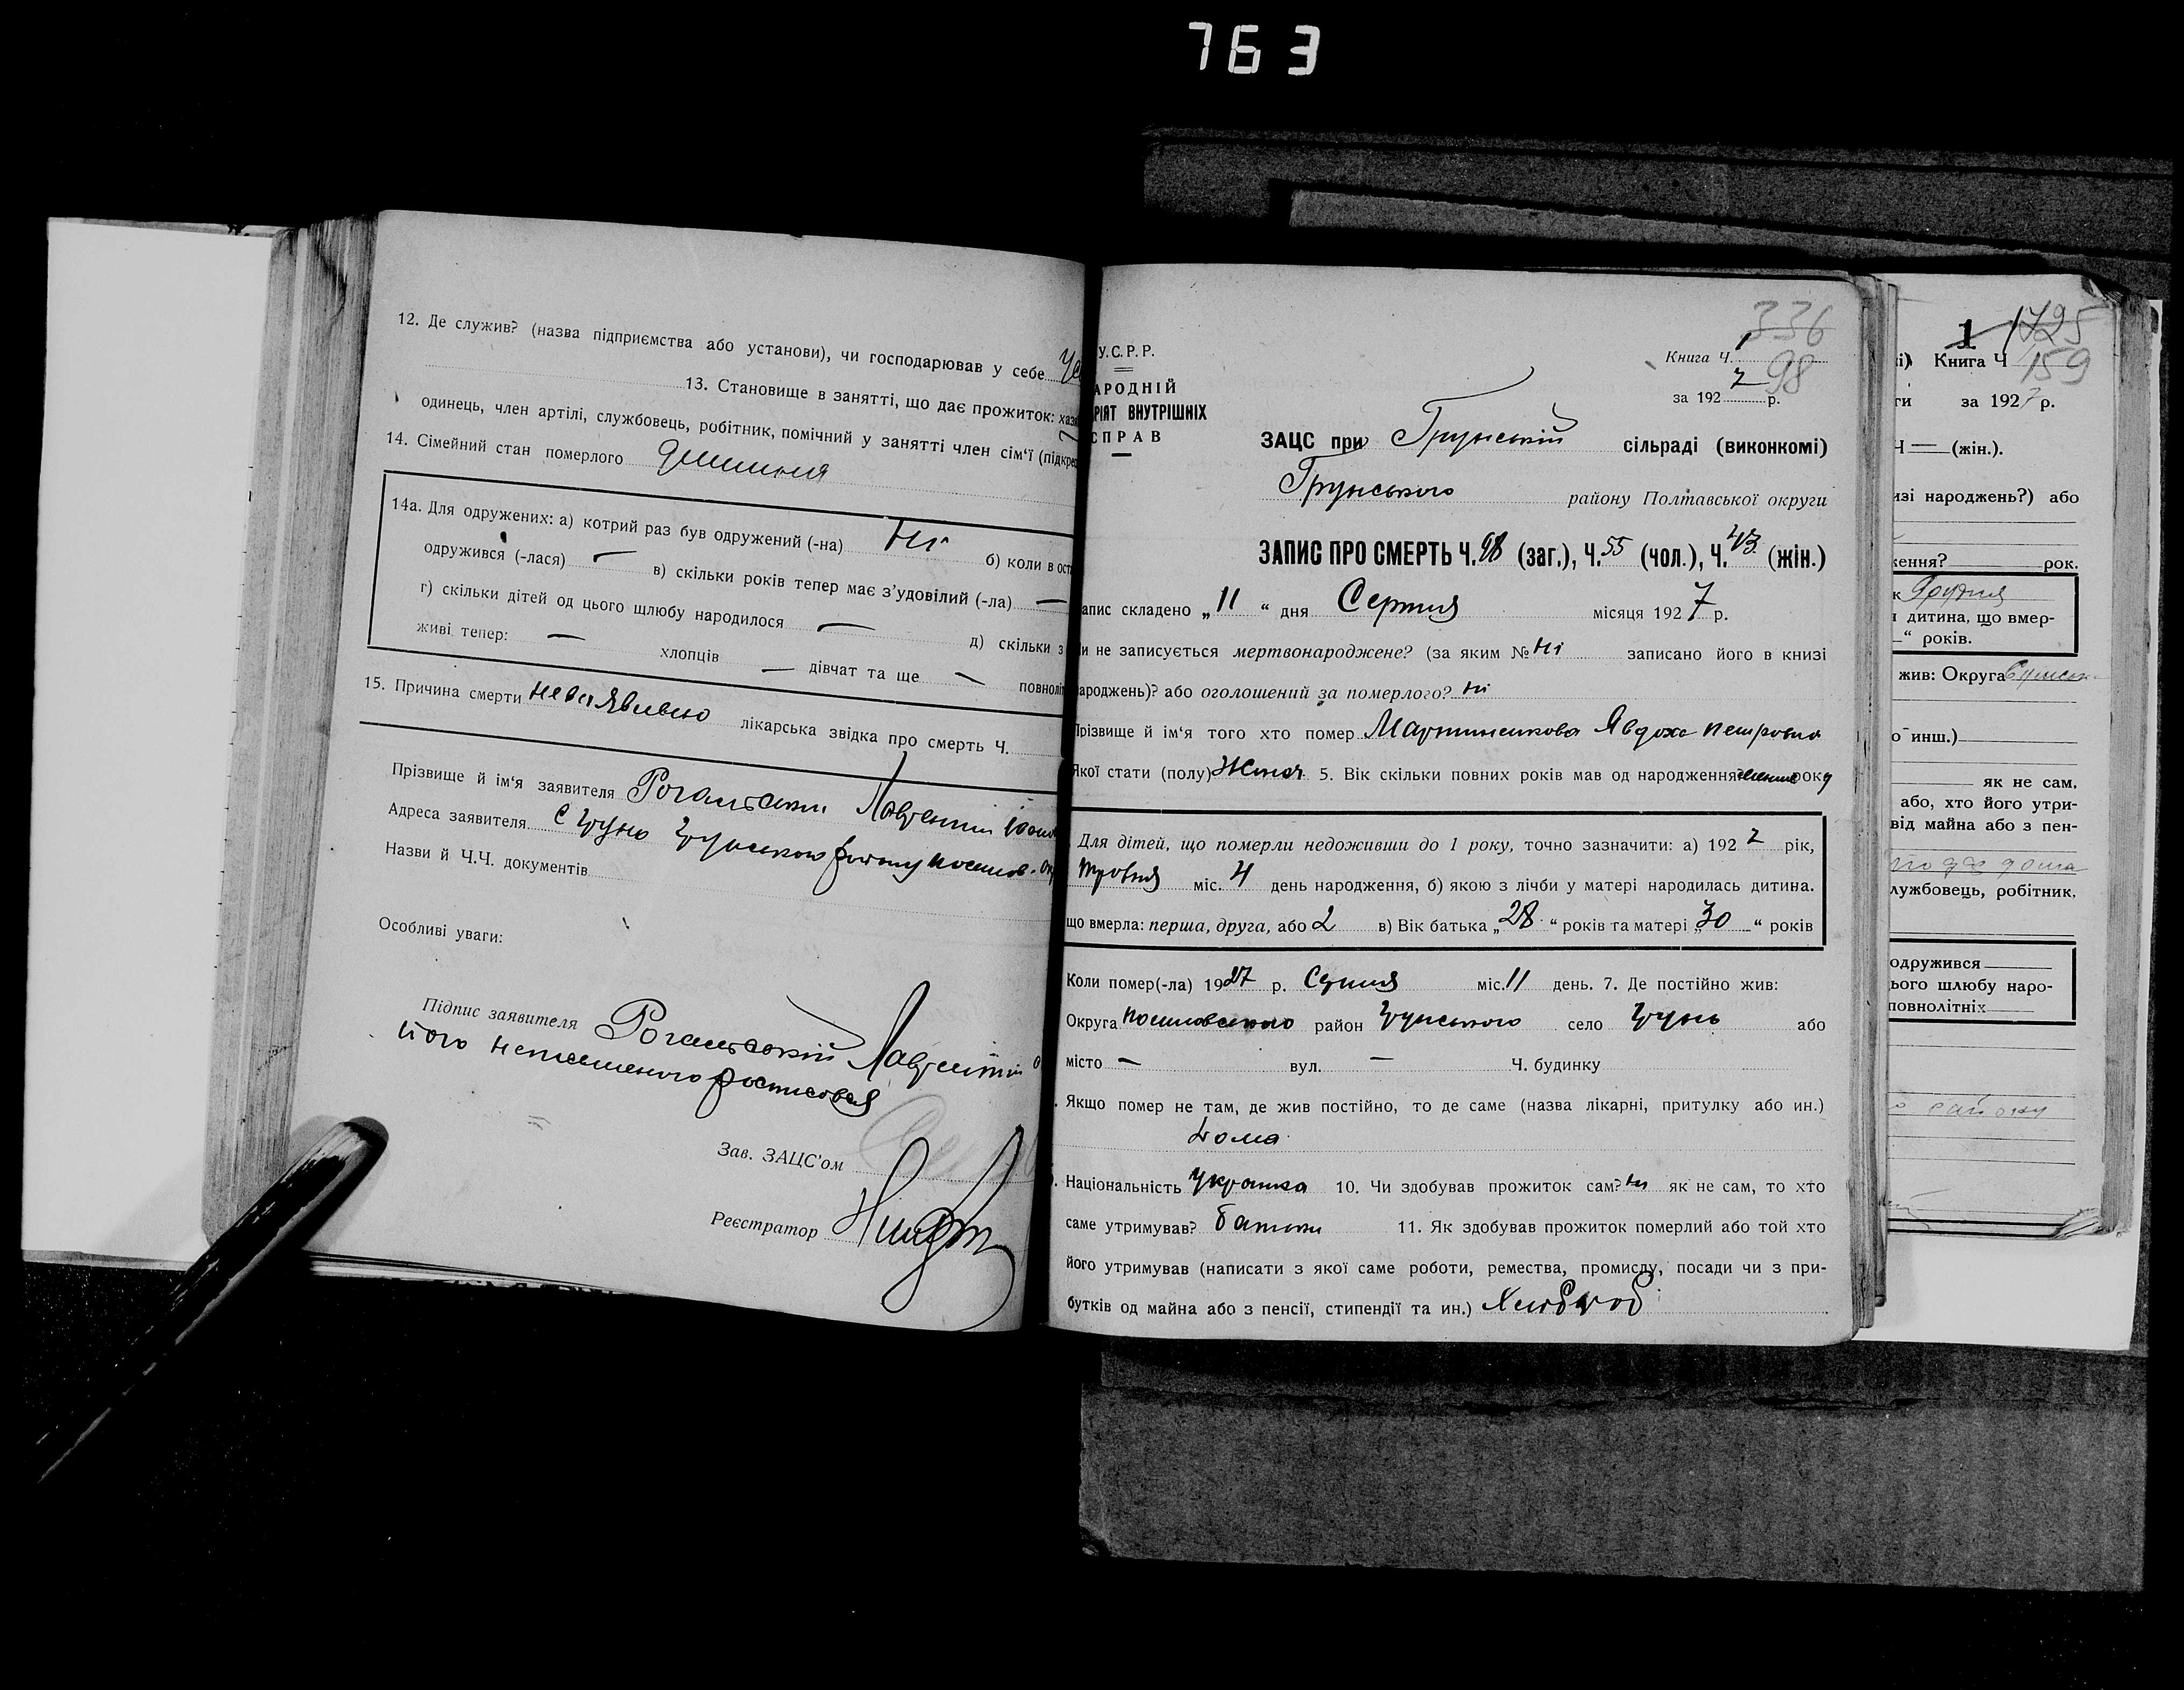 763
12. Де служив? (назва підприємства або установи), чи господарював у себе
13. Становище в занятті, що дає прожиток: хаз
одинець, член артілі, службовець, робітник, помічний у занятті член сім'ї (підкре
14. Сімейний стан померлого дитина
14а. Для одружених: а) котрий раз був одружений (-на) Ні б) коли в ост
одружився (-лася) — в) скільки років тепер має з'удовілий (-ла) —
г) скільки дітей од цього шлюбу народилося — д) скільки з
живі тепер: — хлопців — дівчат та ще — повноліт
15. Причина смерти лікарська звідка про смерть Ч.
Прізвище й ім'я заявителя Лаврентій
Адреса заявителя с Грунь Грунського району
Назви й Ч.Ч. документів
Особливі уваги:
Підпис заявителя Лаврентій
його неписьменного росписався
Зав. ЗАЦС'ом
Реєстратор
У.С.Р.Р.
АРОДНІЙ
РІЯТ ВНУТРІШНІХ
СПРАВ
336
Книга Ч. 1
98
за 192 7 р.
ЗАЦС при Грунській сільраді (виконкомі)
Грунського району Полтавської округи
ЗАПИС ПРО СМЕРТЬ Ч. 98 (заг.), Ч. 55 (чол.), Ч. 43 (жін.)
апис складено „11“ дня Серпня місяця 1927 р.
и не записується мертвонароджене? (за яким № Ні записано його в книзі
ароджень)? або оголошений за померлого? ні
Прізвище й ім'я того хто помер Явдоха Петровна
Якої стати (полу) Жіноч 5. Вік скільки повних років мав од народження року
Для дітей, що померли недоживши до 1 року, точно зазначити: а) 192 7 рік,
травня міс. 4 день народження, б) якою з лічби у матері народилась дитина.
що вмерла: перша, друга, або 2 в) Вік батька „28“ років та матері „30“ років
Коли помер(-ла) 1927 р. Серпня міс. 11 день. 7. Де постійно жив:
Округа район Грунського село Грунь або
місто — вул. — Ч. будинку
Якщо помер не там, де жив постійно, то де саме (назва лікарні, притулку або ин.)
дома
Національність Українка 10. Чи здобував прожиток сам? ні як не сам, то хто
саме утримував? батьки 11. Як здобував прожиток померлий або той хто
його утримував (написати з якої саме роботи, ремества, промислу, посади чи з при-
бутків од майна або з пенсії, стипендії та ин.) Хлібороб
1 1425
і) Книга Ч 159
ти за 1927 р.
Ч — (жін.).
изі народжень?) або
ження? рок.
к Грудня
я дитина, що вмер-
“ років.
жив: Округа
о инш.)
як не сам,
або, хто його утри-
від майна або з пен-
лужбовець, робітник,
одружився
ього шлюбу наро-
повнолітніх
району